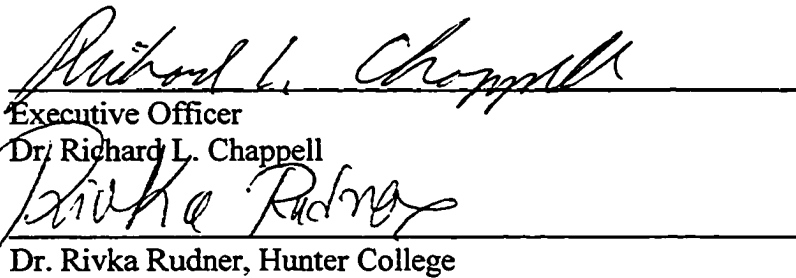 Richard L. Chappell
Executive Officer
Dr. Richard L. Chappell
Rivka Rudner
Dr. Rivka Rudner, Hunter College